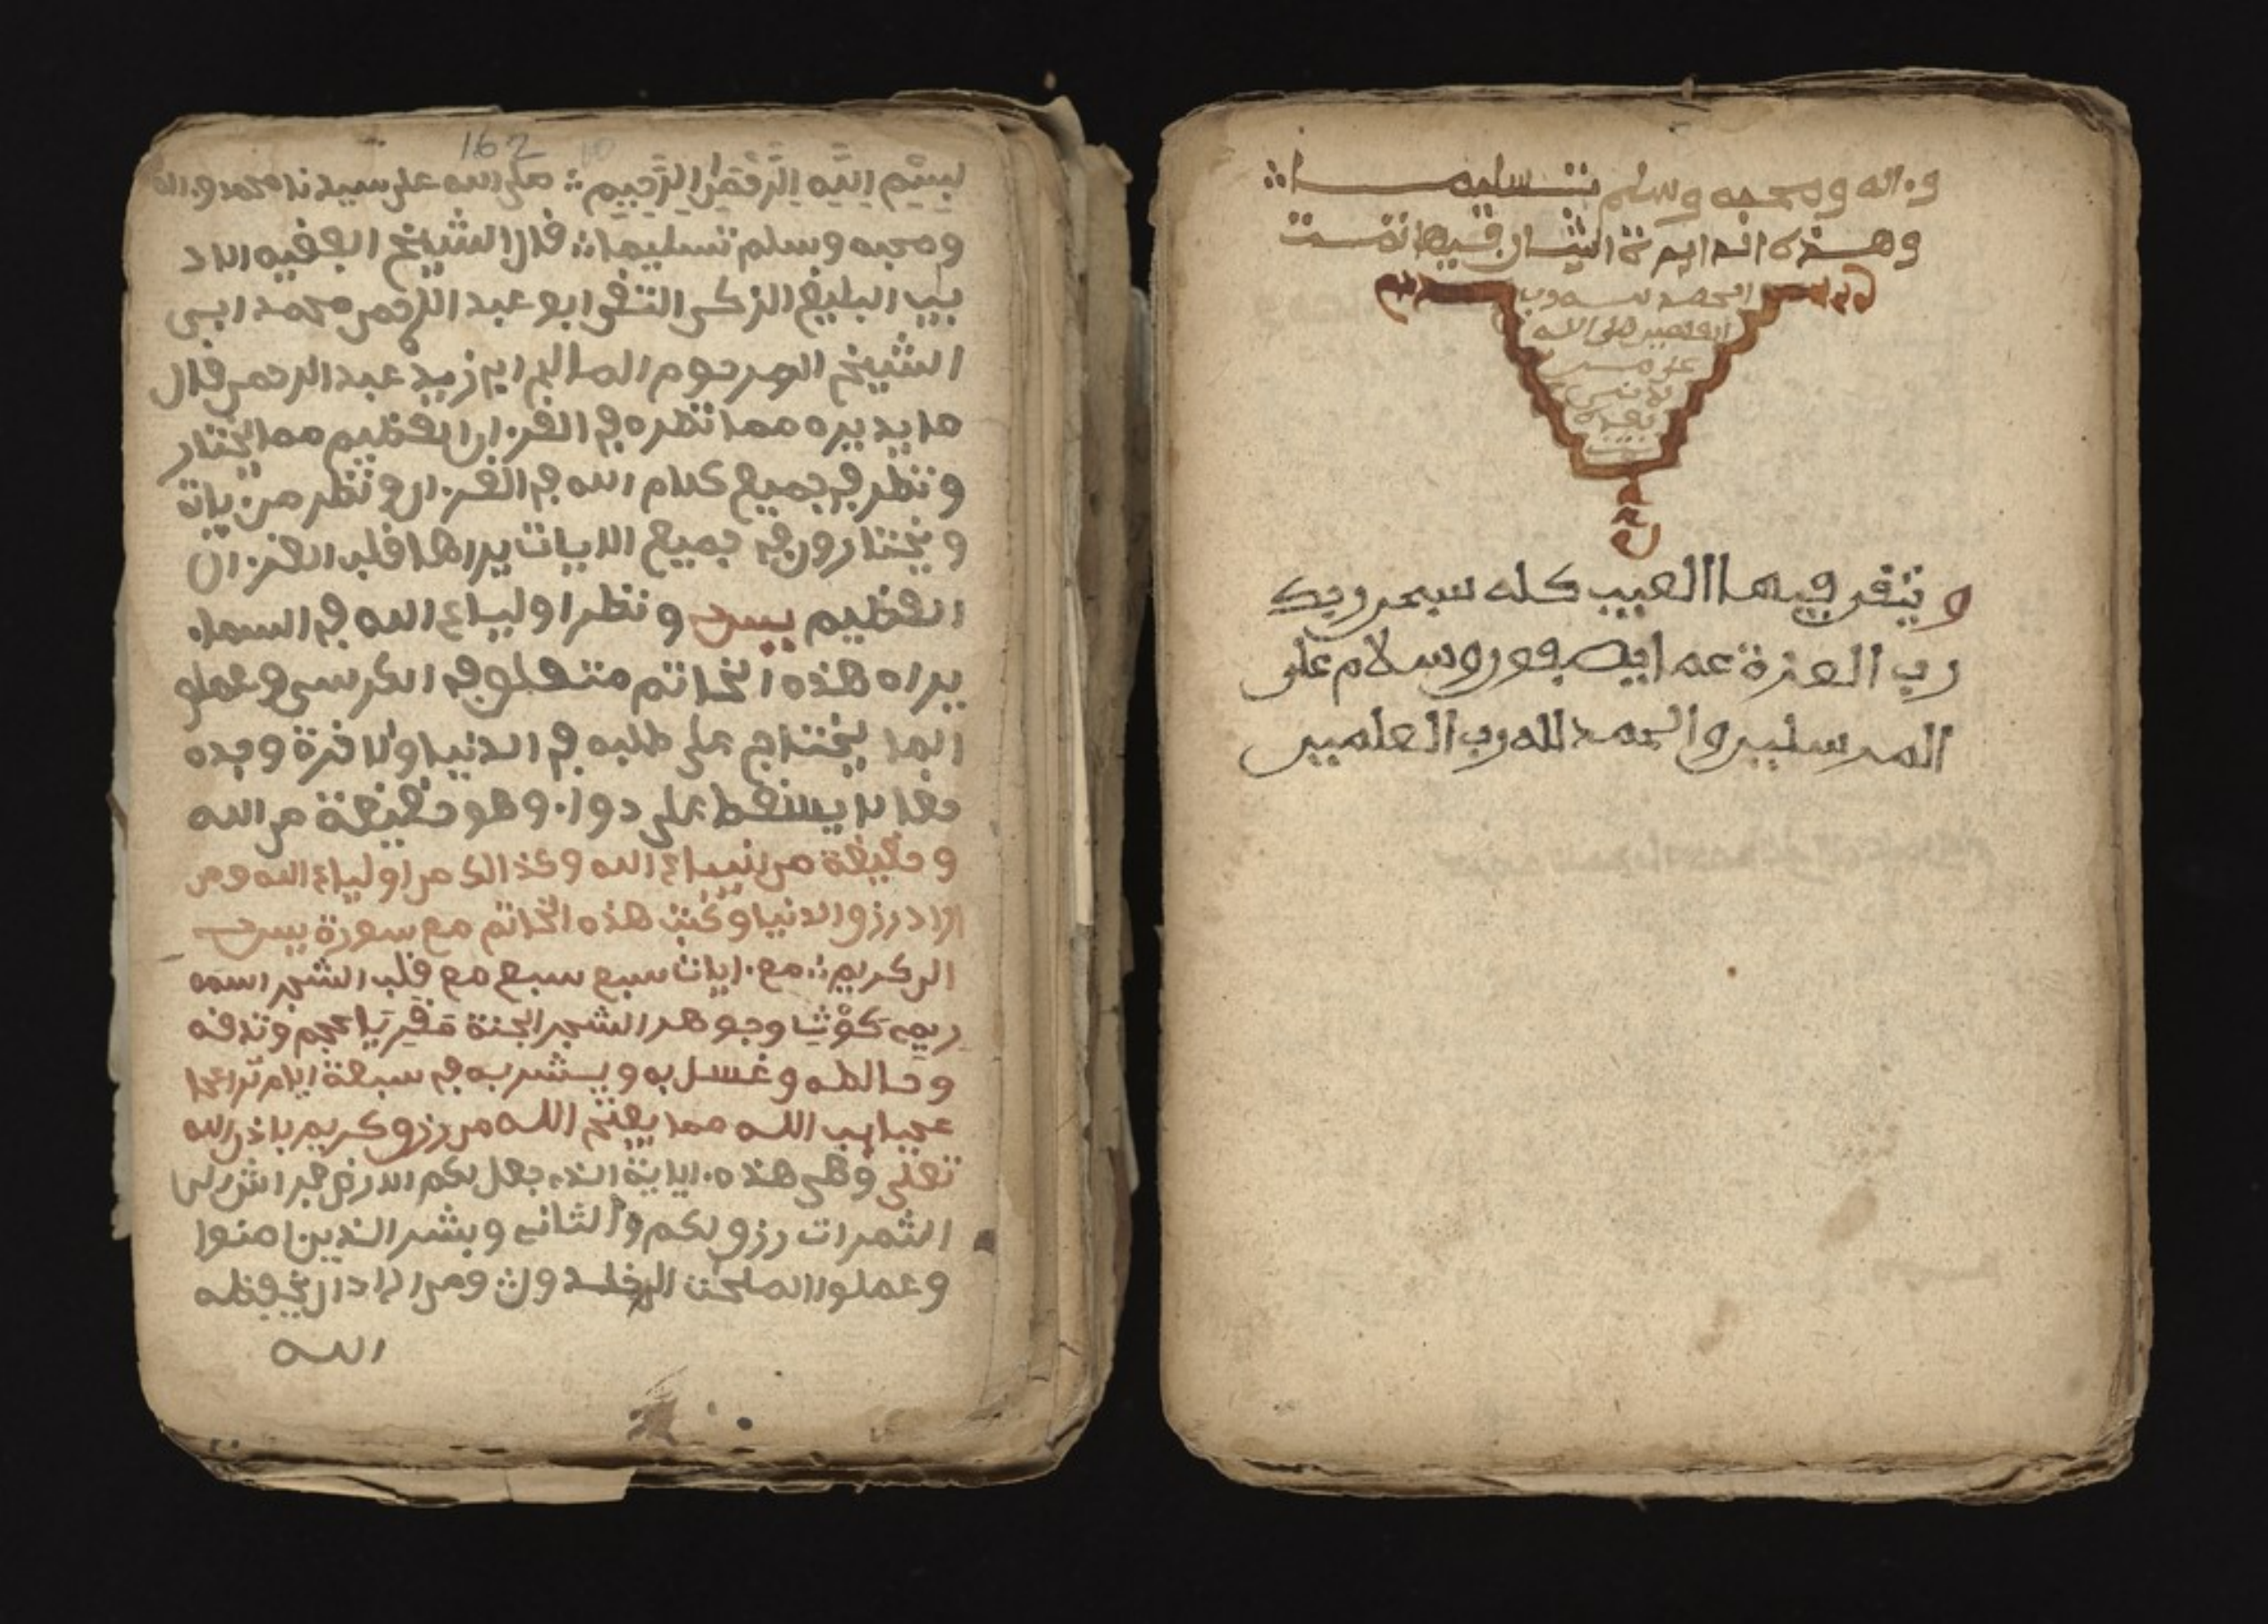 و اله وصحبه وسلم تسليما
وهذه الدايرة التيان فيها تمت
الحمد لله رب
العلمين صلى الله
على من
لا نبي
بعده
وتقر فيها العيب كله سبحن ربك
رب العزة عما يصفون وسلام على
المرسلين والحمد لله رب العلمين
162
بسم الله الرحمن الرحيم صلى الله على سيدنا محمد واله
وصحبه وسلم تسليما قال الشيخ الفقيه الاد
يب البليغ الزكى التقى ابو عبد الرحمن محمد ابى
الشيخ المرحوم الصالح ابى زيد عبد الرحمن قال
ما يديره مما نظره فى القران العظيم مما يختار
ونظر فى جميع كلام الله فى القران ونظر من ياتة
ويختارون فى جميع الايات يراها قلب القران
العظيم يس ونظر اولياء الله فى السماء
يراه هذه الخاتم متعلق فى الكرسى وعملو
انها يختاج على طلبه فى الدنيا ولاخرة وجده
حقا لا يسقط على دواء وهو حقيقة من الله
وحقيقة من انبياء الله وكذالك من اولياء الله ومن
اراد رزق الدنيا وكتب هذه الخاتم مع سورة يس
الى كريم مع ايات سبع سبع مع قلب الشجر اسمه
ريم كوثيا وجوهر الشجر الجنة عجم وتدقه
وخالطه وغسل به ويشربه فى سبعة ايام ترا
عجيايب الله مما يفتح الله من رزق كريم باذن الله
تعلى وهى هذه الاية الذى جعل لكم الارض فراشا الى
الثمرات رزق لكم والثانى وبشر الذين امنوا
وعملوا الصلحت الى خلدون ومن اراد ان يحفظه
الله